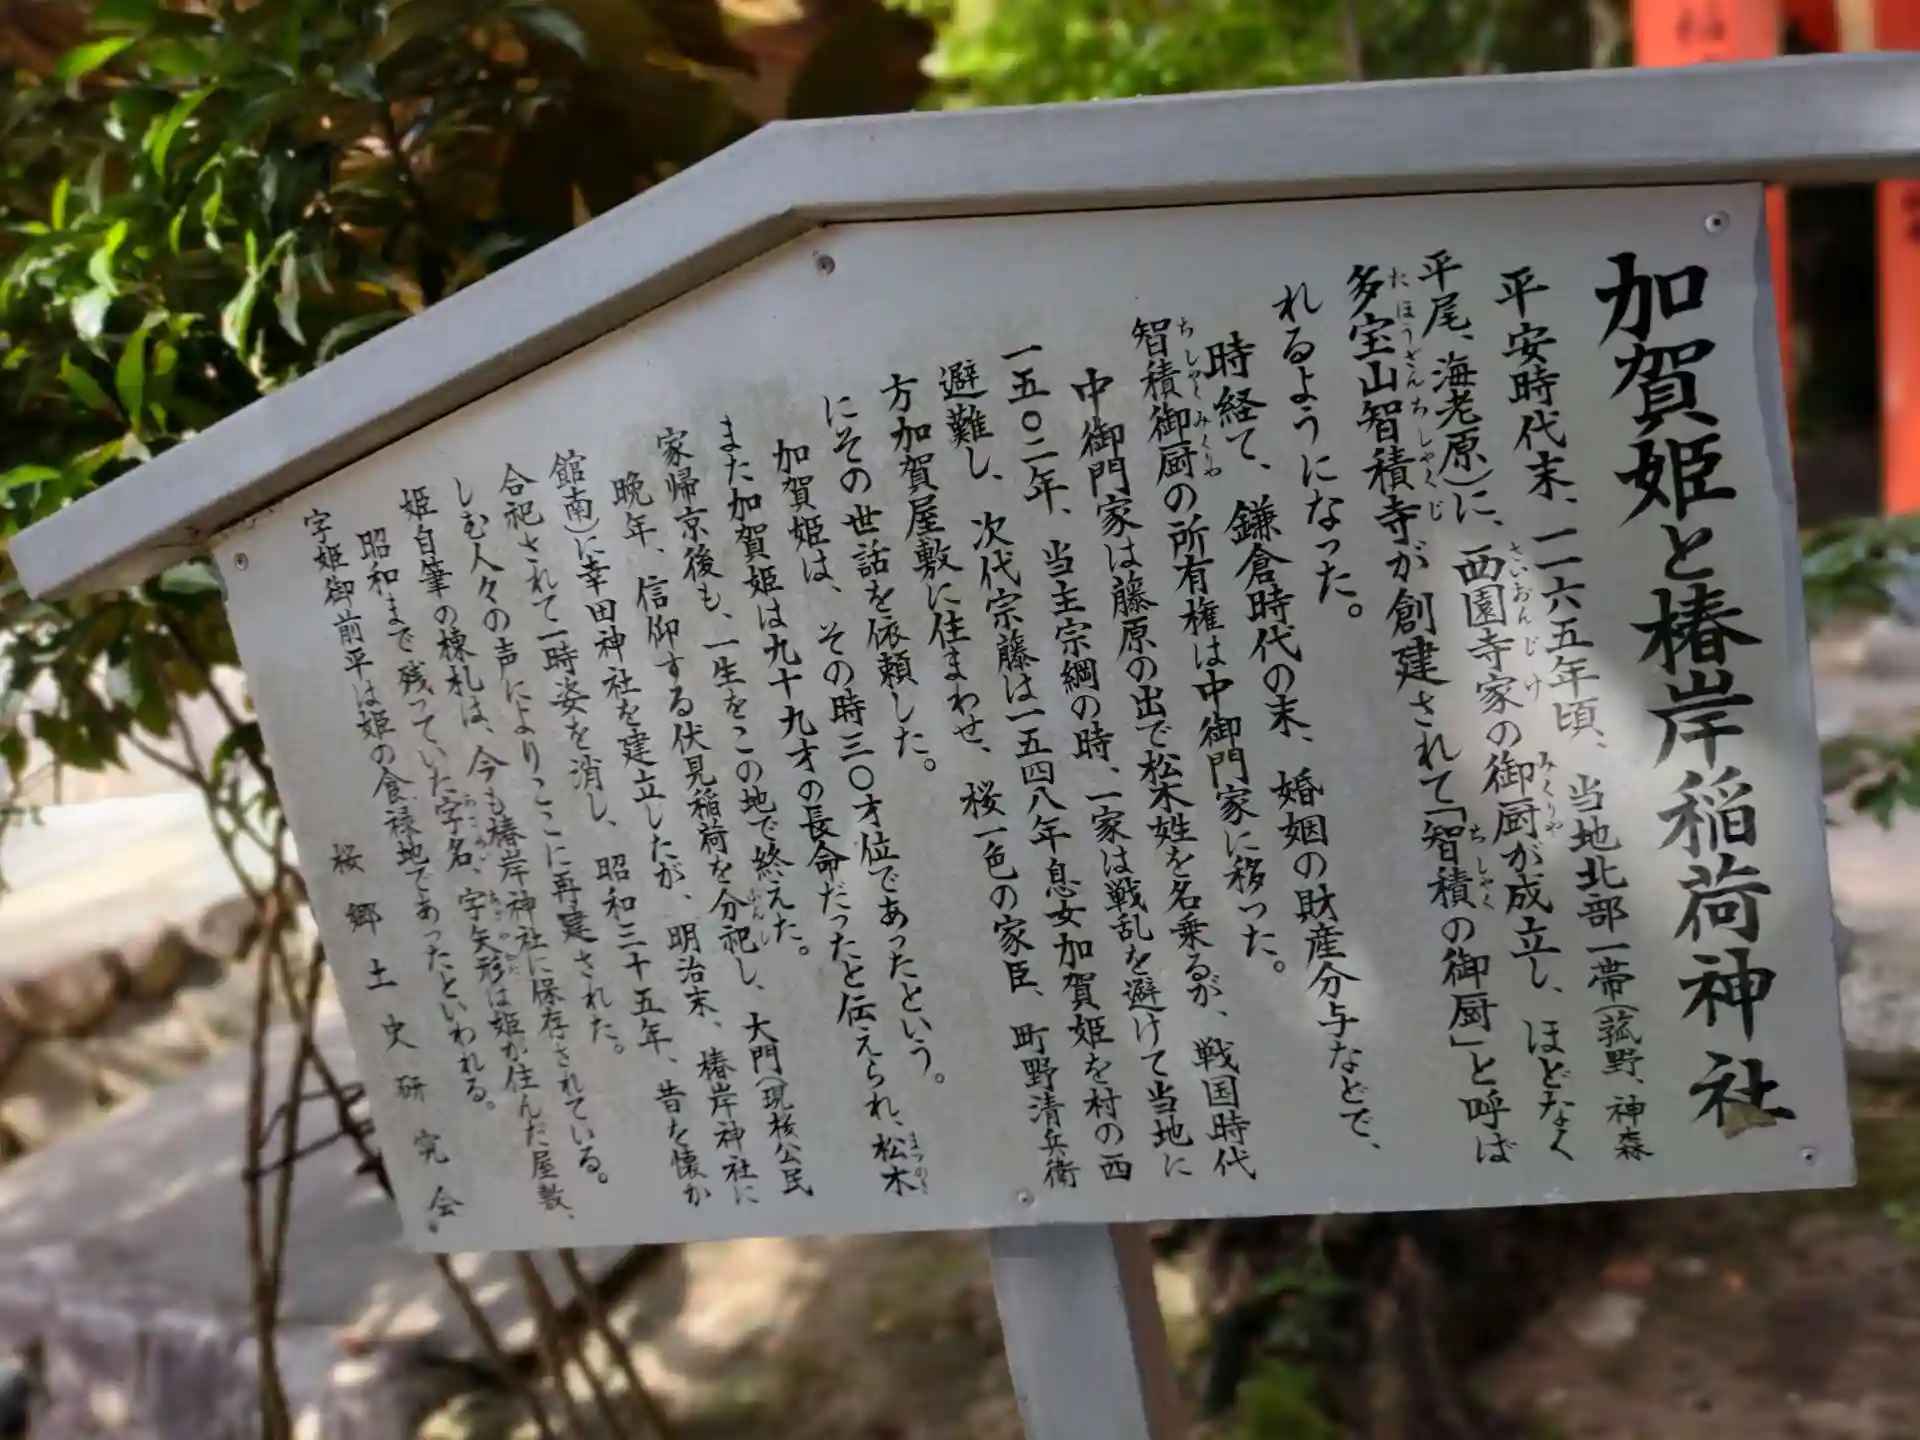 加賀姫と椿岸稲荷神社
平安時代末、一一六五年頃、当地北部一帯(菰野、神森
平尾、海老原)に、西園寺家の御厨が成立し、ほどなく
多宝山智積寺が創建されて「智積の御厨」と呼ば
れるようになった。
時経て、鎌倉時代の末、婚姻の財産分与などで、
智積御厨の所有権は中御門家に移った。
中御門家は藤原の出で松木姓を名乗るが、戦国時代
一五〇二年、当主宗綱の時、一家は戦乱を避けて当地に
避難し、次代宗藤は一五四八年息女加賀姫を村の西
方加賀屋敷に住まわせ、桜一色の家臣、町野清兵衛
にその世話を依頼した。
加賀姫は、その時三〇才位であったという。
また加賀姫は九十九才の長命だったと伝えられ、松木
家帰京後も、一生をこの地で終えた。
晩年、信仰する伏見稲荷を分祀し、大門(現桜公民
館南)に幸田神社を建立したが、明治末、椿岸神社に
合祀されて一時姿を消し、昭和三十五年、昔を懐か
しむ人々の声によりここに再建された。
姫自筆の棟札は、今も椿岸神社に保存されている。
昭和まで残っていた字名、字矢形は姫が住んだ屋敷、
字姫御前平は姫の食禄地であったといわれる。
桜郷土史研究会